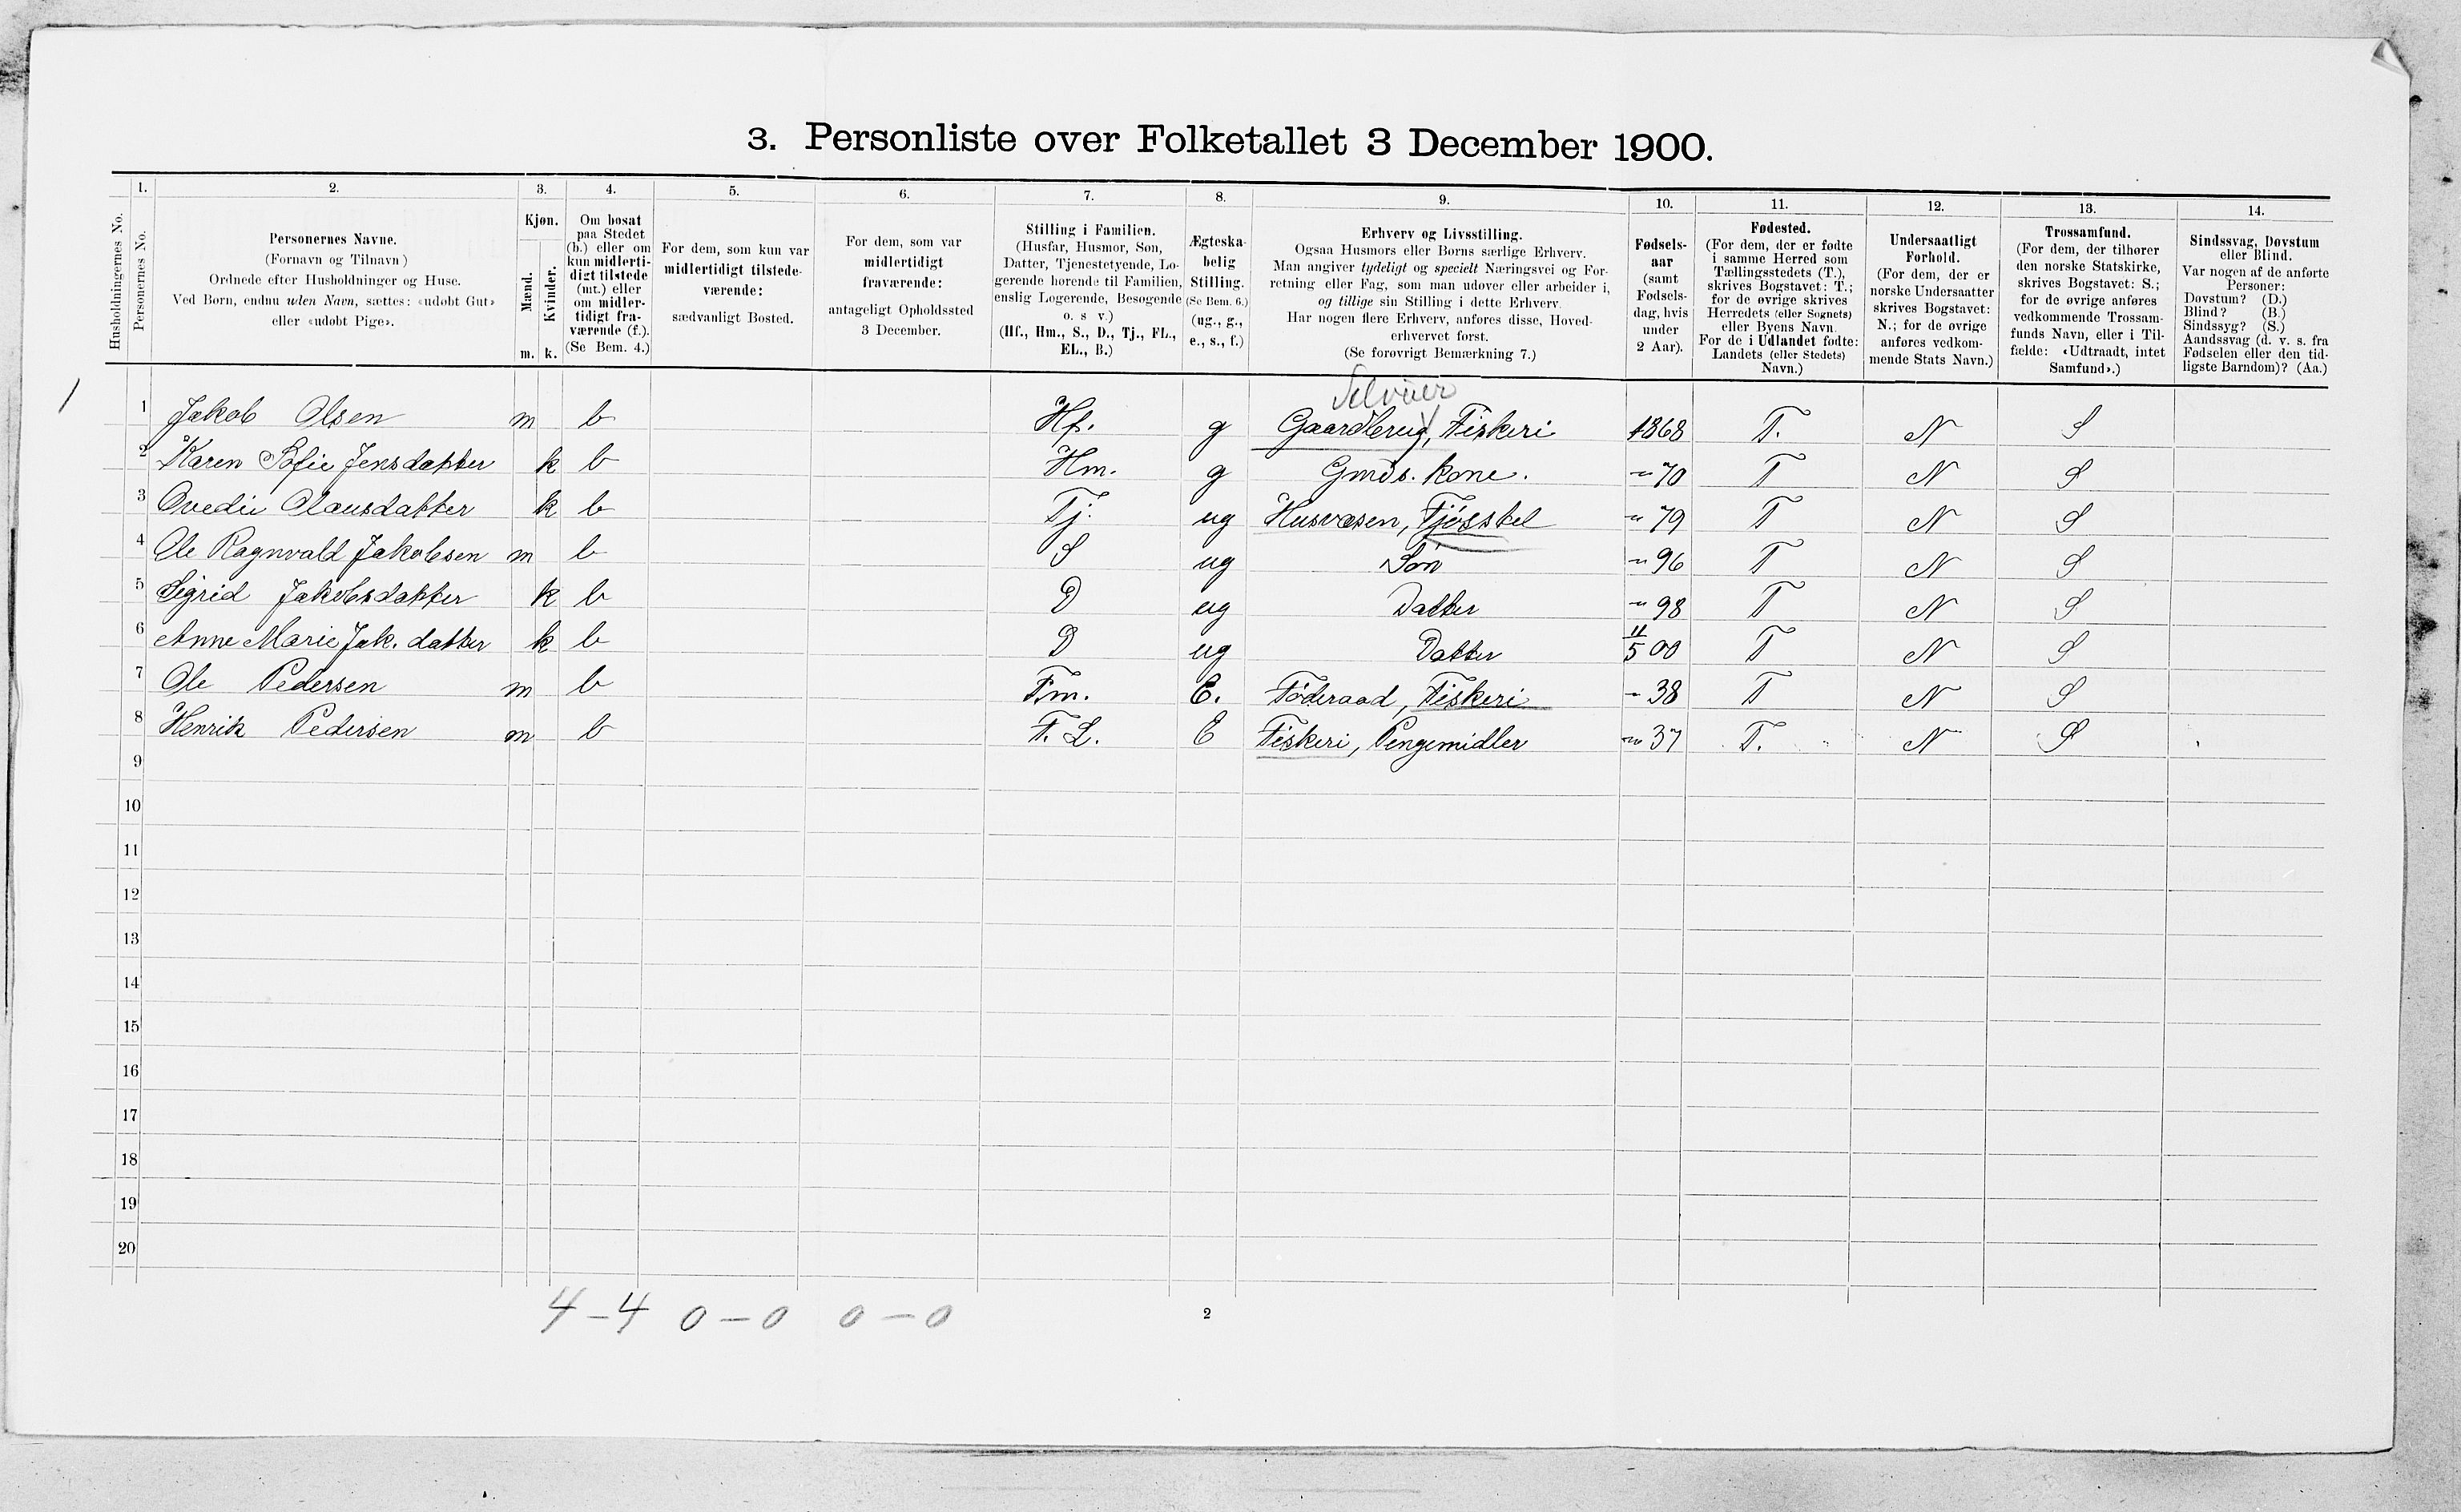 3. Personliste over Folketallet 3 December 1900.
1. 2. 3. 4. 5. 6. 7. 8. 9. 10. 11. 12. 13. 14.
Husholdningernes No.
Personernes No.
Personernes Navne.
(Fornavn og Tilnavn)
Ordnede efter Husholdninger og Huse.
Ved Børn, endnu uden Navn, sættes: «udøbt Gut»
eller «udøbt Pige».
Kjøn.
Mænd.
Kvinder.
m. k.
Om bosat
paa Stedet
(b.) eller om
kun midlerti-
digt tilstede
(mt.) eller
om midler-
tidigt fra-
værende (f.).
(Se Bem. 4.)
For dem, som kun var
midlertidigt tilstede-
værende:
sædvanligt Bosted.
For dem, som var
midlertidigt
fraværende:
antageligt Opholdssted
3 December.
Stilling i Familien.
(Husfar, Husmor, Søn,
Datter, Tjenestetyende, Lo-
gerende hørende til Familien,
enslig Logerende, Besøgende
o. s v.)
(Hf., Hm., S., D., Tj., FL.,
EL., B.)
Ægteska-
belig
Stilling.
(Se Bem. 6.)
(ug., g.,
e., s., f.)
Erhverv og Livsstilling.
Ogsaa Husmors eller Børns særlige Erhverv.
Man angiver tydeligt og specielt Næringsvei og For-
retning eller Fag, som man udøver eller arbeider i,
og tillige sin Stilling i dette Erhverv.
Har nogen flere Erhverv, anføres disse, Hoved-
erhvervet først.
(Se forøvrigt Bemærkning 7.)
Fødsels-
aar
(samt
Fødsels-
dag, hvis
under
2 Aar).
Fødested.
(For dem, der er fødte
i samme Herred som
Tællingsstedets (T.),
skrives Bogstavet: T.;
for de øvrige skrives
Herredets (eller Sognets)
eller Byens Navn.
For de i Udlandet fødte:
Landets (eller Stedets)
Navn.)
Undersaatligt
Forhold.
(For dem, der er
norske Undersaatter
skrives Bogstavet:
N.; for de øvrige
anføres vedkom-
mende Stats Navn.)
Trossamfund.
(For dem, der tilhører
den norske Statskirke,
skrives Bogstavet: S.;
for de øvrige anføres
vedkommende Trossam-
funds Navn, eller i Til-
fælde: «Udtraadt, intet
Samfund».)
Sindssvag, Døvstum
eller Blind.
Var nogen af de anførte
Personer:
Døvstum? (D.)
Blind? (B.)
Sindssyg? (S.)
Aandssvag (d. v. s. fra
Fødselen eller den tid-
ligste Barndom)? (Aa.)
Selveier
1 1 Jakob Olsen m b Hf. g Gaardbrug, Fiskeri 1868 T. N S
2 Karen Sofie Jensdatter k b Hm. g Gmds. kone. " 70 T N S
3 Ovedie Olausdatter k b Tj. ug Husvæsen, Fjøsstel " 79 T N S
4 Ole Ragnvald Jakobsen m b S ug Søn " 96 T N S
5 Sigrid Jakobsdatter k b D ug Datter " 98 T N S
6 Anne Marie Jak. datter k b D ug Datter 11/5 00 T N S
7 Ole Pedersen m b Fm. E. Føderaad, Fiskeri " 38 T N S
8 Henrik Pedersen m b F. L. E Fiskeri, Pengemidler " 37 T. N S
9
10
11
12
13
14
15
16
17
18
19
20
4 – 4 0 – 0 0 – 0
2